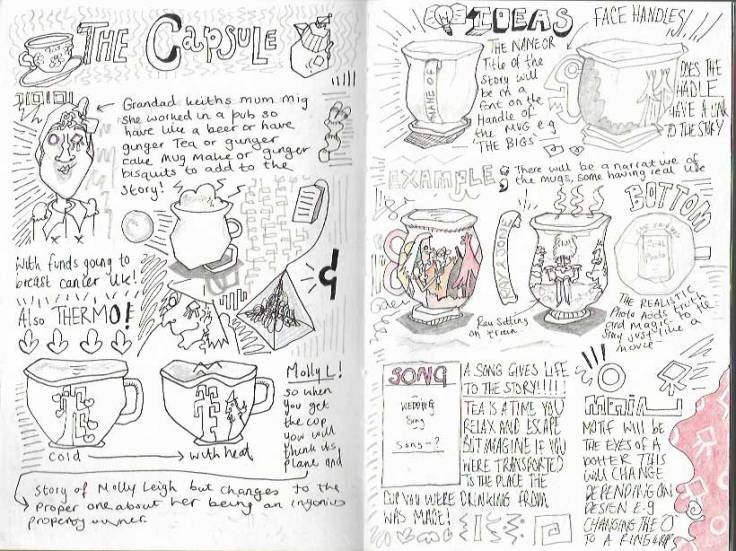 THE CAPSULE
Grandad Keiths mum mig
she worked in a pub so
have like a beer or have
ginger Tea or gunger
cake mug make or ginger
bisquits to add to the
Story!
With funds going to
breast cancer UK!
Also THERMO!
Cold
with heat
Molly L!
so when
you get
the cup
you will
think its
plane and
Story of Molly Leigh but changes to the
proper one about her being an ingenius
property owner.
IDEAS
FACE HANDLES!
THE NAME OR
Title of the
Story will
be in a
font on the
Handle of
the MUG e.g
'THE BIGS
MAKE OF
DOES THE
HADLE
HAVE A LINK
TO THE STORY
EXAMPLE;
There will be a narrative of
the mugs, some having real life
BOTTOM
Ray Sitting
on train
THE REALISTIC
Photo Adds truth
and magic to the
story just like a
movie
SONG
WEDDING
Song
Song-?
A SONG GIVES LIFE
TO THE STORY!!!!!
TEA IS A TIME YOU
RELAX AND ESCAPE
BUT IMAGINE IF YOU
WERE TRANSPORTED
TO THE PLACE THE
CUP YOU WERE DRINKING FROM
WAS MADE!
MOTIF WILL BE
THE EYES OF A
POTTER THIS
WILL CHANGE
DEPENDING ON
DESIGN E.G
CHANGING THE O
TO A RING